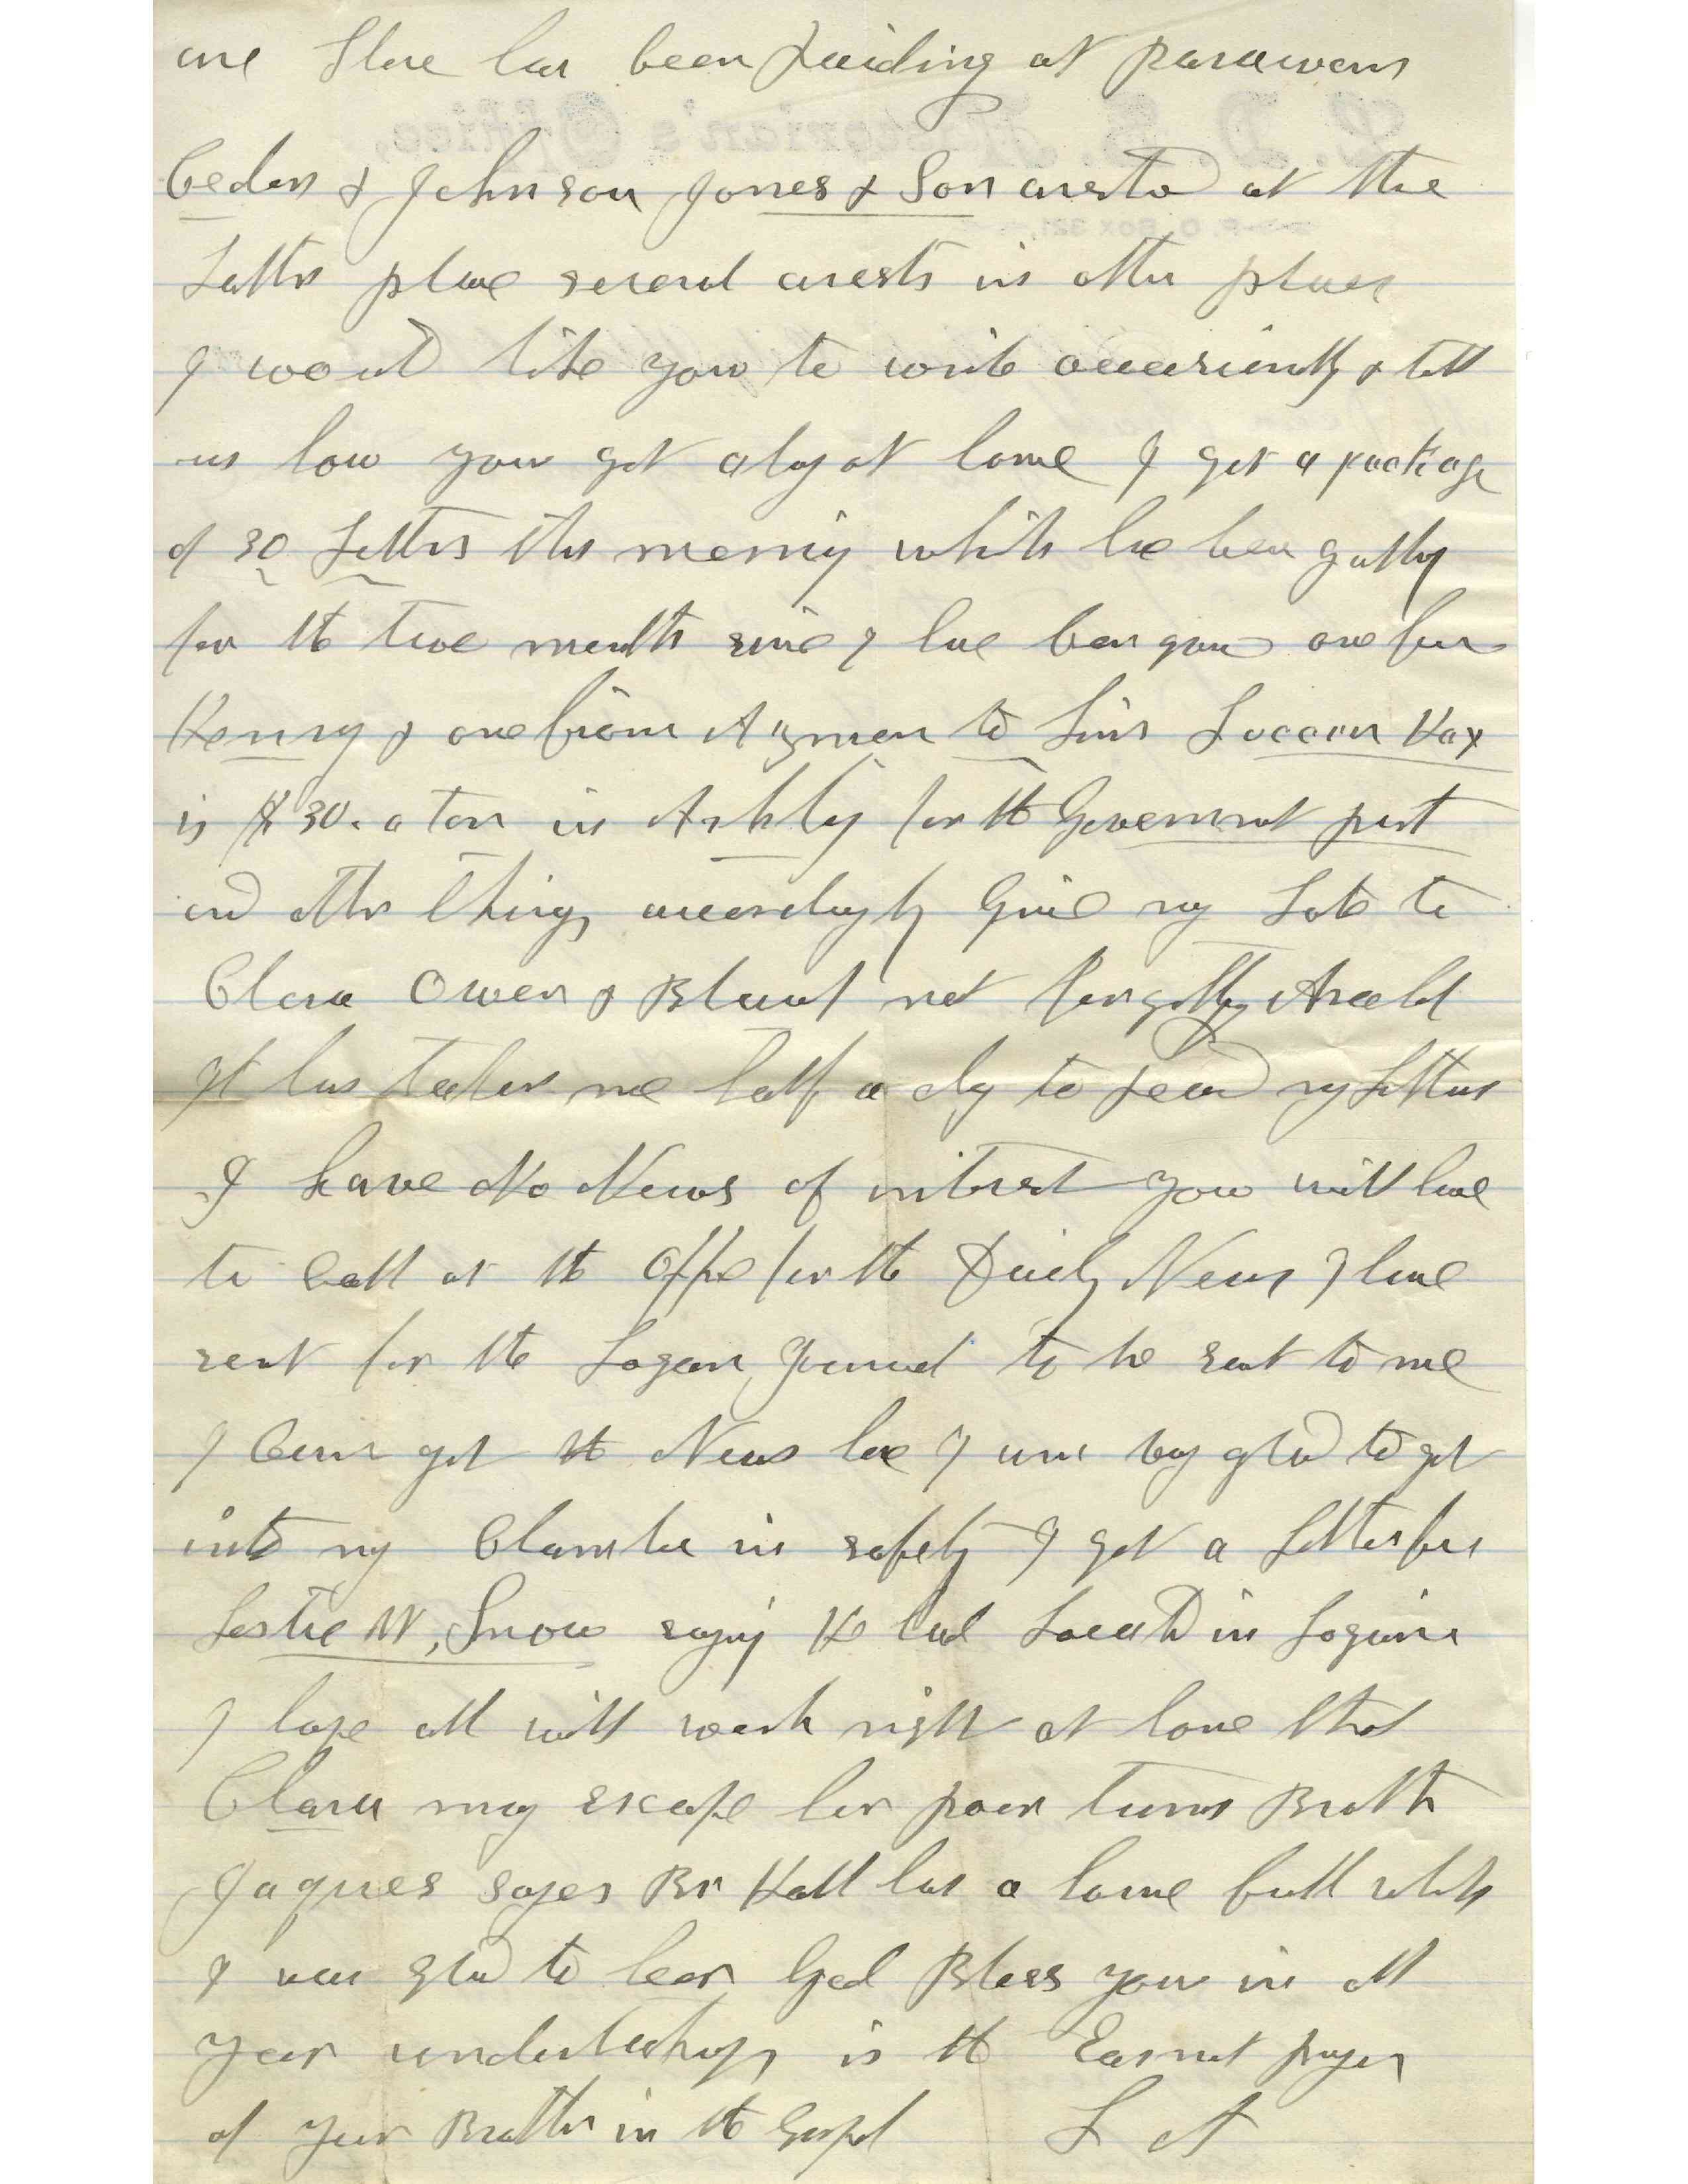 are there has been Raiding at parawons
Cedar & Johnson Jones & Son arested at the
Latter place several arests in other places
I would like you to write occasionally & tell
us how you get along at home I got a package
of 30 Letters this morning which has been gathg
for the two months since I have been gone one from
Henry & one from Azmon to him Lucern Hay
is $30. a ton in Ashley for the Government post
and other things accordingly Give my Love to
Clara Owen & Blanch not forgetting Asahel
It has taken me half a day to read my Letters
I have No News of interest you will have
to Call at the Office for the Daily News I have
sent for the Logan Journal to be sent to me
I Can get the News here I was vry glad to get
into my Chamber in safety I got a Letter from
Leslie W, Snow saying He had Located in
I hope all will work right at home that
Clara may escape her poor turns Broth
Jaques sayes Br Hall has a home full which
I was glad to hear God Bless you in all
your undertakings is the Earnest prayer
of your Brother in the Gospel L A
L. D. S. Historian's Office,
P. O. Box 321,